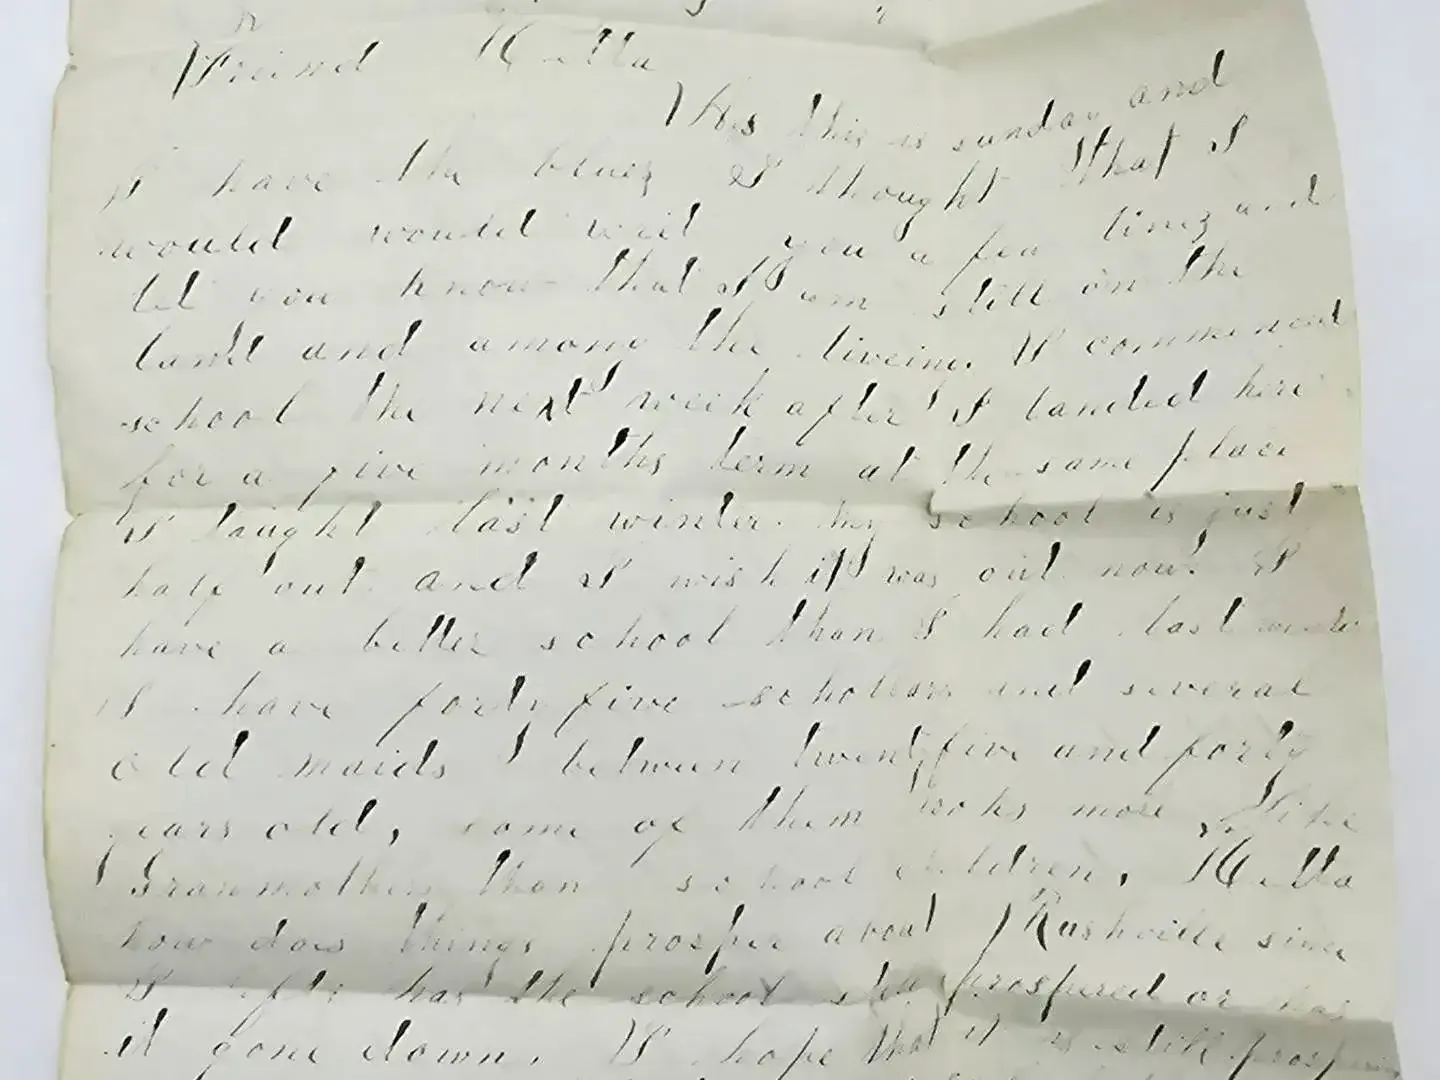 Friend Hetta
As this is sunday and
I have the bluez I thought that I
would would writ you a few linez and
let you know that I am still on the
land and among the liveing. I commenced
school the next week after I landed here
for a five months term at the same place
I taught last winter. my school is just
half out and I wish it was out now. I
have a better school than I had last winter
I have forty five schollars and several
old maids between twenty five and forty
years old, some of them looks more like
Granmothers than school children, Hetta
how does things prosper about Rushville since
I left. has the school still prospered or has
it gone down. I hope that it is still prospering